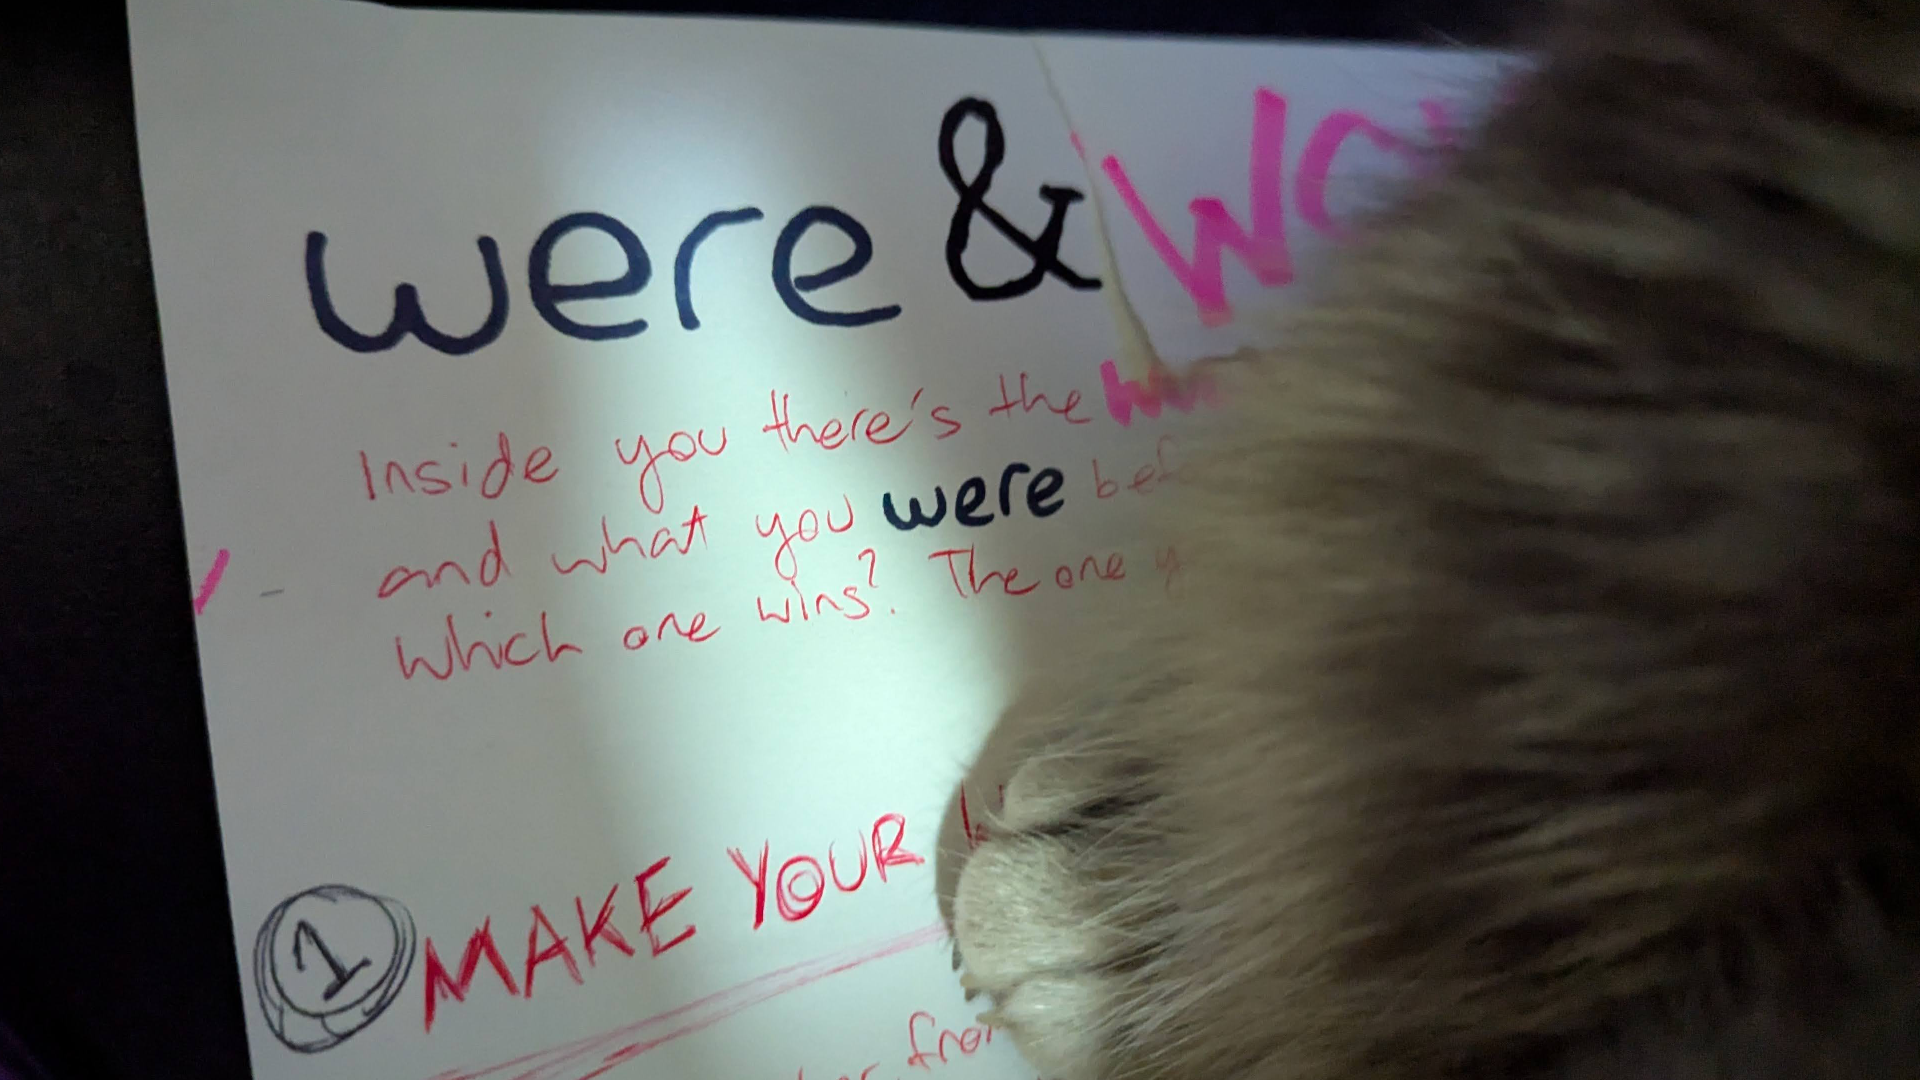 were &
Inside you there's the
and what you were
Which one wins? The one
1 MAKE YOUR